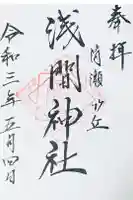 奉拝
浅間神社
令和三年五月四日